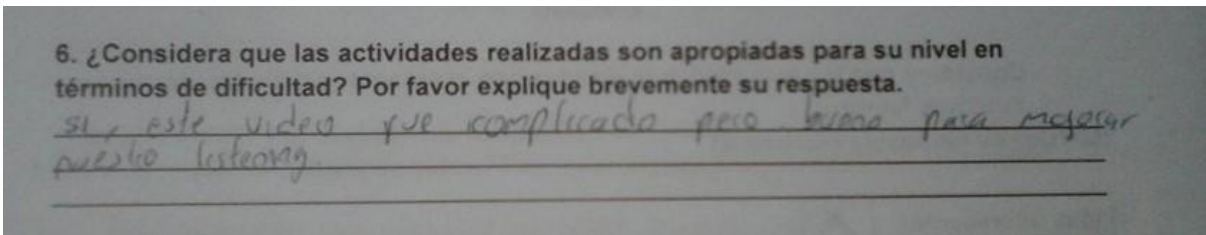 6. ¿Considera que las actividades realizadas son apropiadas para su nivel en
términos de dificultad? Por favor explique brevemente su respuesta.
si, este video fue complicado pero bueno para mejorar
nuestro listening.